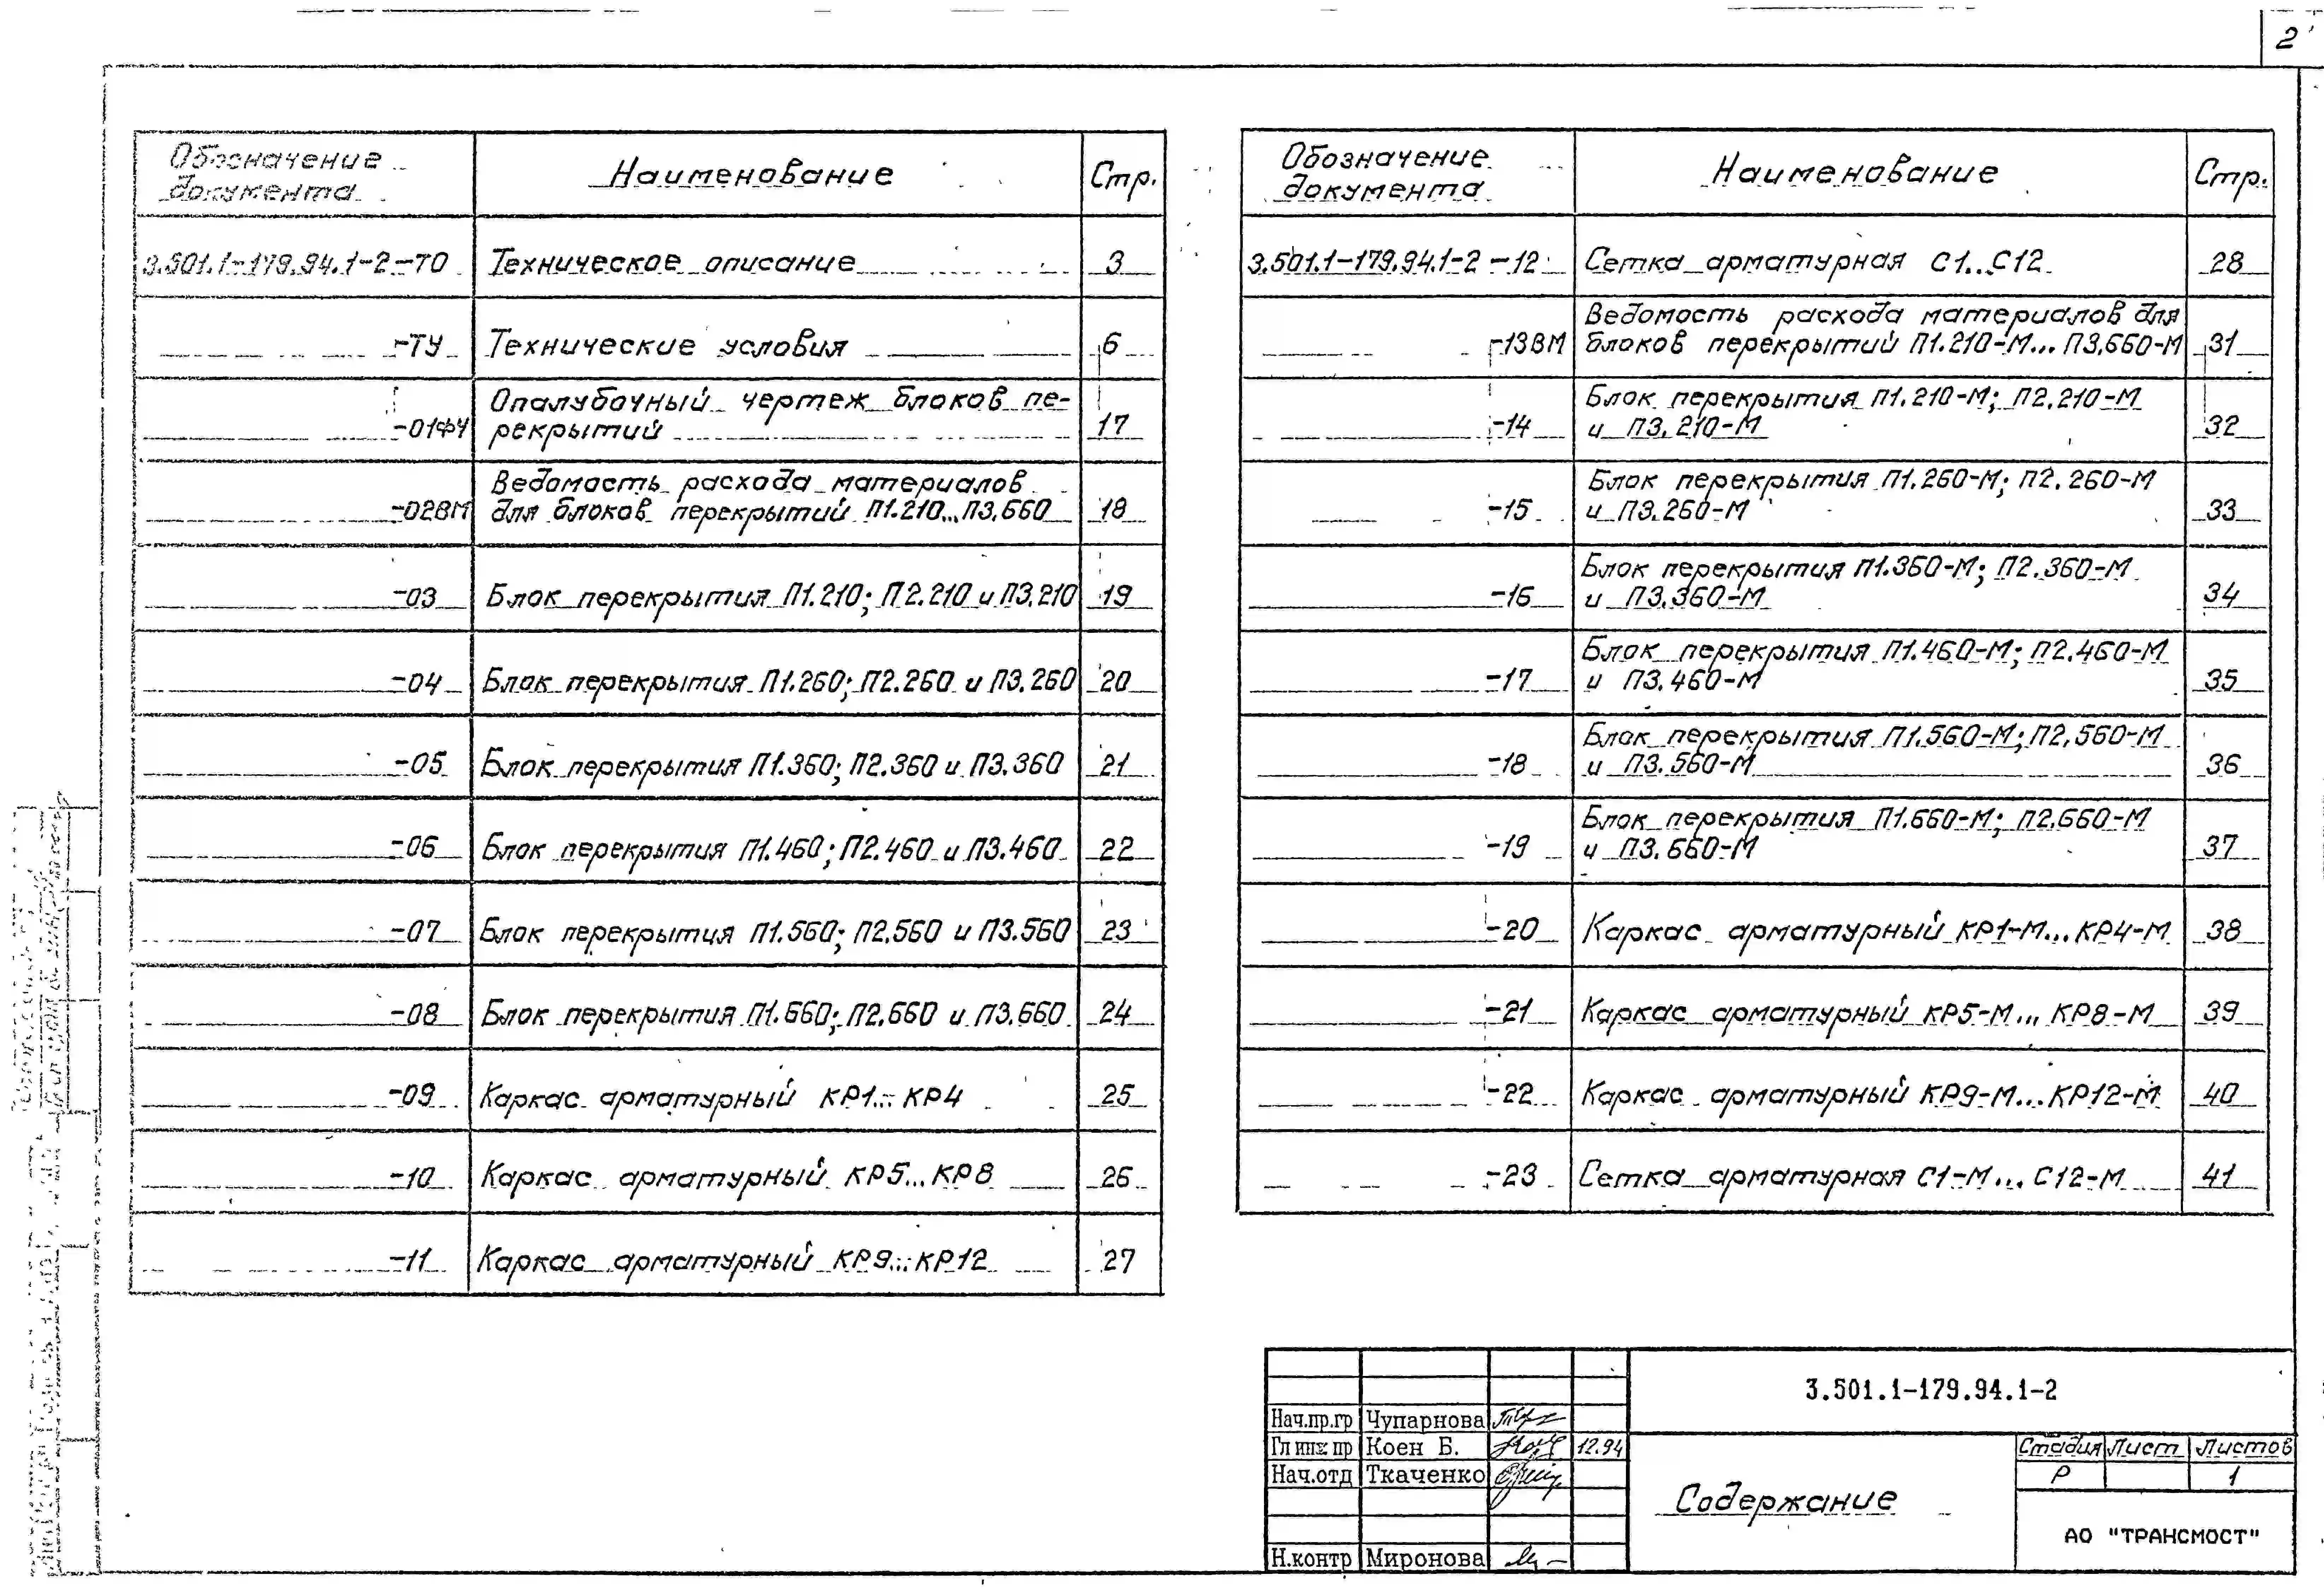 2
Обозначение документа Наименование Стр.
3.501.1-179.94.1-2-ТО Техническое описание 3
-ТУ Технические условия 6
-01ФЧ Опалубочный чертеж блоков пе-
рекрытий 17
-02ВМ Ведомость расхода материалов
для блоков перекрытий П1.210...П3.660 18
-03 Блок перекрытия П1.210; П2.210 и П3.210 19
-04 Блок перекрытия П1.260; П2.260 и П3.260 20
-05 Блок перекрытия П1.360; П2.360 и П3.360 21
-06 Блок перекрытия П1.460; П2.460 и П3.460 22
-07 Блок перекрытия П1.560; П2.560 и П3.560 23
-08 Блок перекрытия П1.660; П2.660 и П3.660 24
-09 Каркас арматурный КР1...КР4 25
-10 Каркас арматурный КР5...КР8 26
-11 Каркас арматурный КР9...КР12 27
Обозначение документа Наименование Стр.
3.501.1-179.94.1-2-12 Сетка арматурная С1...С12 28
-13ВМ Ведомость расхода материалов для
блоков перекрытий П1.210-М...П3.660-М 31
-14 Блок перекрытия П1.210-М; П2.210-М
и П3.210-М 32
-15 Блок перекрытия П1.260-М; П2.260-М
и П3.260-М 33
-16 Блок перекрытия П1.360-М; П2.360-М
и П3.360-М 34
-17 Блок перекрытия П1.460-М; П2.460-М
и П3.460-М 35
-18 Блок перекрытия П1.560-М; П2.560-М
и П3.560-М 36
-19 Блок перекрытия П1.660-М; П2.660-М
и П3.660-М 37
-20 Каркас арматурный КР1-М...КР4-М 38
-21 Каркас арматурный КР5-М...КР8-М 39
-22 Каркас арматурный КР9-М...КР12-М 40
-23 Сетка арматурная С1-М...С12-М 41
3.501.1-179.94.1-2
Нач.пр.гр Чупарнова
Гл инж пр Коен Б. 12.94
Нач.отд Ткаченко
Н.контр Миронова
Содержание
Стадия Лист Листов
Р 1
АО "ТРАНСМОСТ"